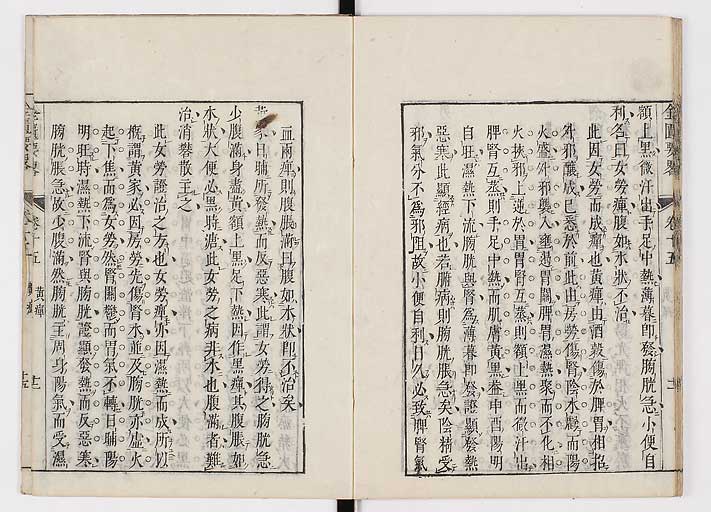 額上黑微汗出手足中熱薄暮即發膀胱急小便自
利名曰女勞癉腹如水狀不治
此因女勞而成癉也黃癉由酒穀傷於脾胃相招
外邪釀成已悉於前此由房勞傷腎陰水虧而陽
火盛外邪襲入壅遏胃關脾胃濕熱聚而不化相
火挾邪上逆於胃胃腎互蒸則額上黑而微汗出
脾腎互蒸則手足中熱而肌膚黃黑每申酉陽明
自旺濕熱下流膀胱與腎為薄暮即發證顯發熱
惡寒此顯經病也若腑病則膀胱脹急矣陰精受
邪氣分不為邪阻故小便自利日久必致脾腎氣
血兩癉則腹脹滿曰腹如水狀即不治矣
黃家日晡所發熱而反惡寒此謂女勞得之膀胱急
少腹滿身盡黃額上黑足下熱因作黑癉其腹脹如
水狀大便必黑時溏此女勞之病非水也腹滿者難
治消礬散主之
此女勞證治之方也女勞癉亦因濕熱而成所以
概謂黃家必因房勞先傷腎水並及膀胱亦虛火
起下焦而為女勞然腎關鬱而胃氣不轉日晡陽
明旺時濕熱下流腎與膀胱證顯發熱而反惡寒
膀胱脹急故少腹滿然膀胱主周身陽氣而受濕
金匱要略 卷十五 黃癉